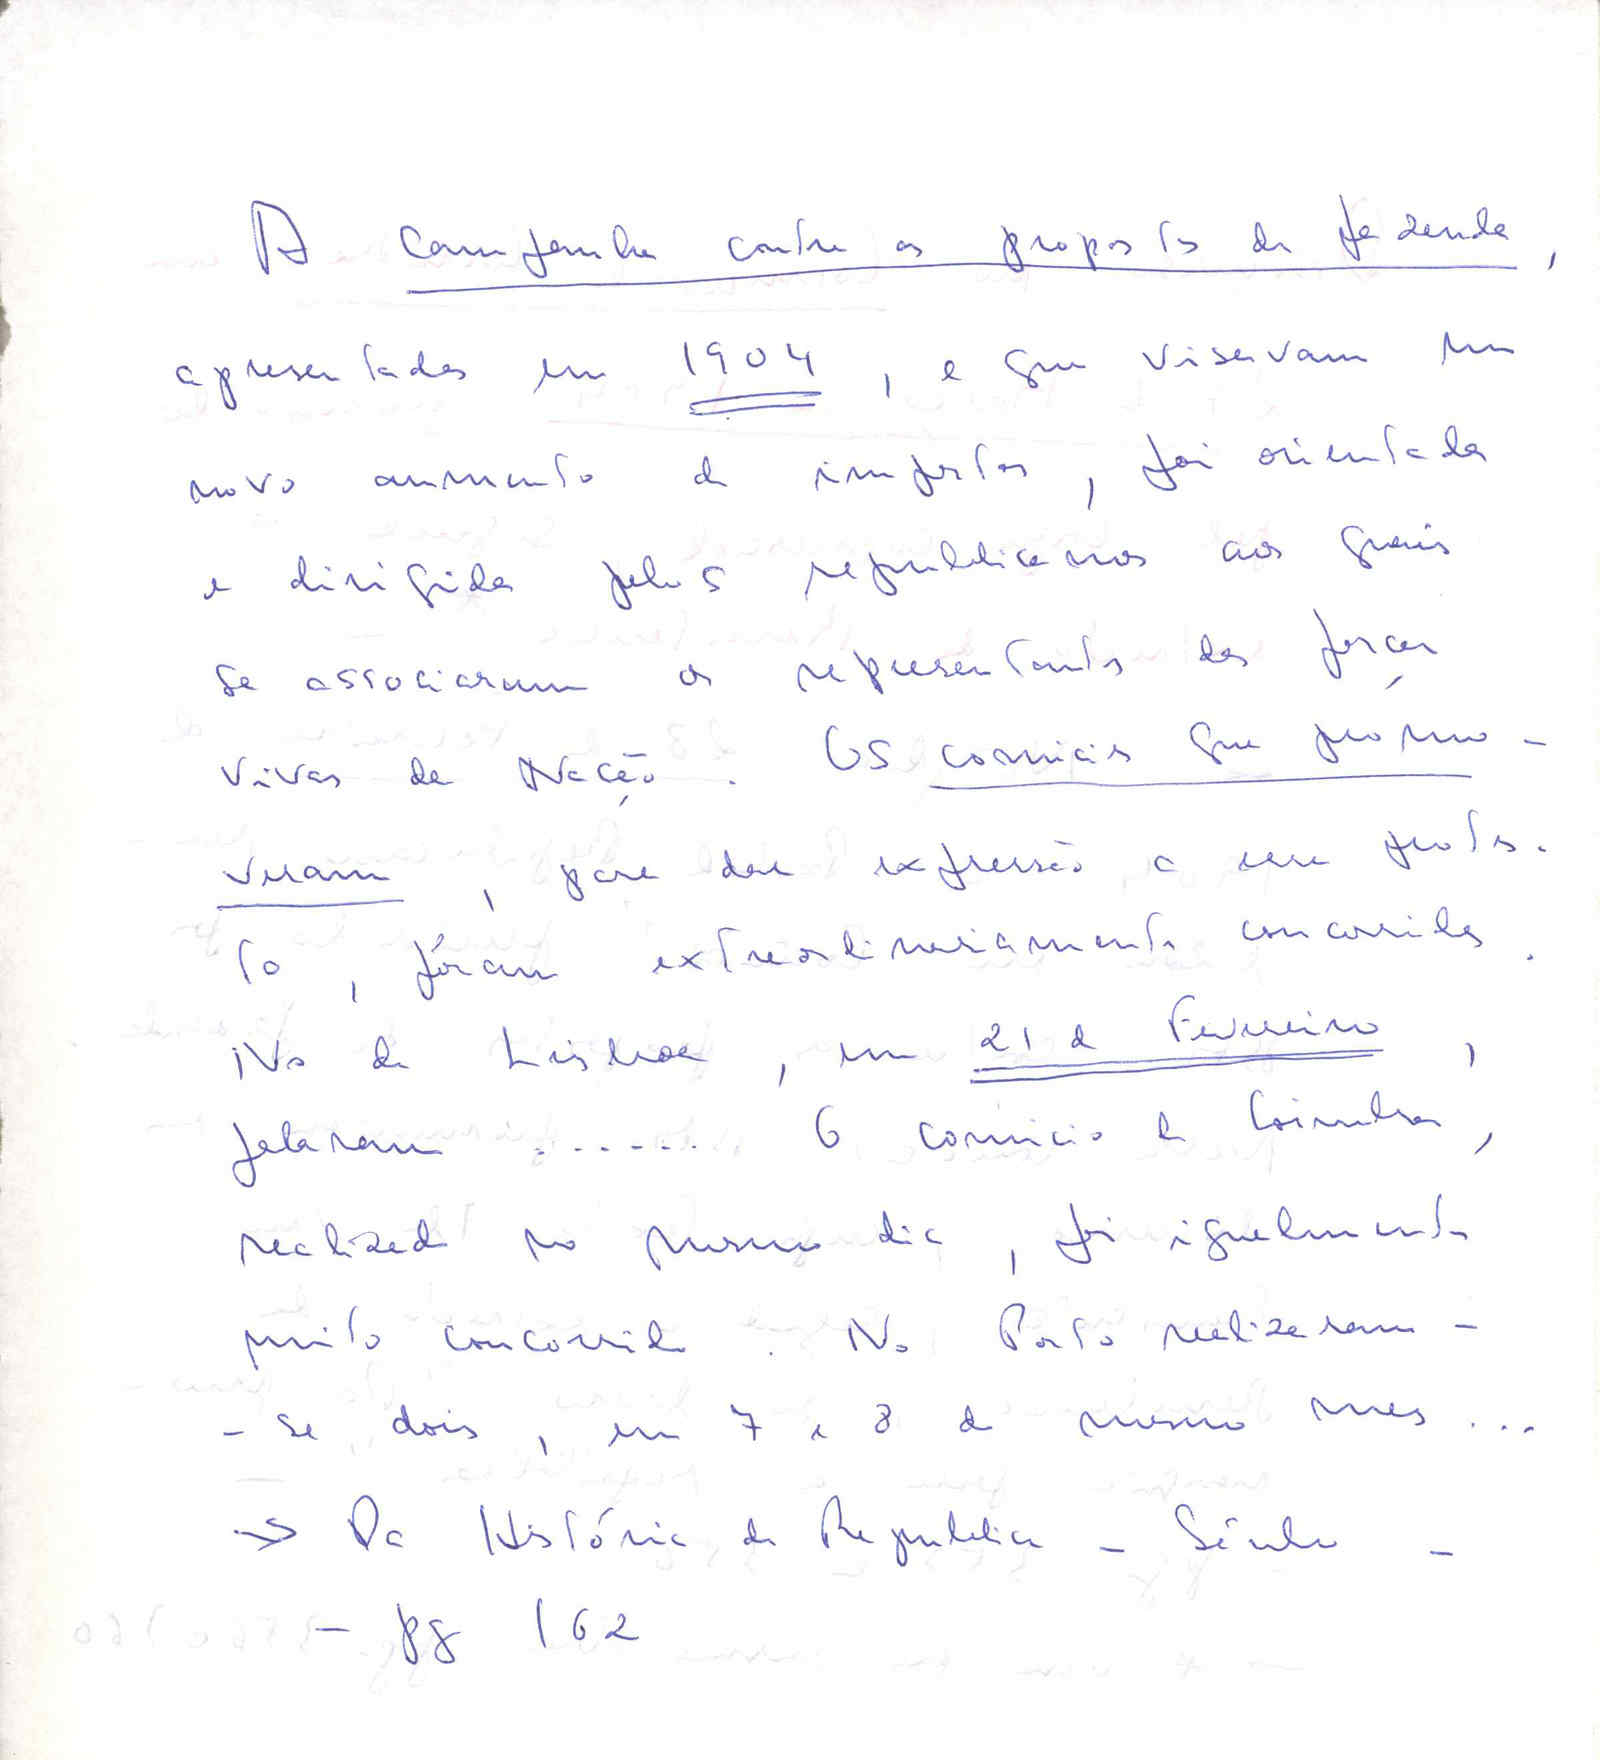 A campanha contra as propostas de fazenda,
apresentadas em 1904, e que visavam um
novo aumento de impostos, foi orientada
e dirigida pelos republicanos aos quais
se associaram os representantes das forças
vivas da Nação. Os comicios que promo-
veram, para dar expressão a esse protes-
to, fôram extraordinariamente concorridos.
No de Lisboa, em 21 de Fevereiro,
falaram ...... O comicio de Coimbra,
realizado no mesmo dia, foi igualmente
muito concorrido. No Porto realizaram-
-se dois, em 7 e 8 do mesmo mes...
→ Da História da Republica -
- pg 162